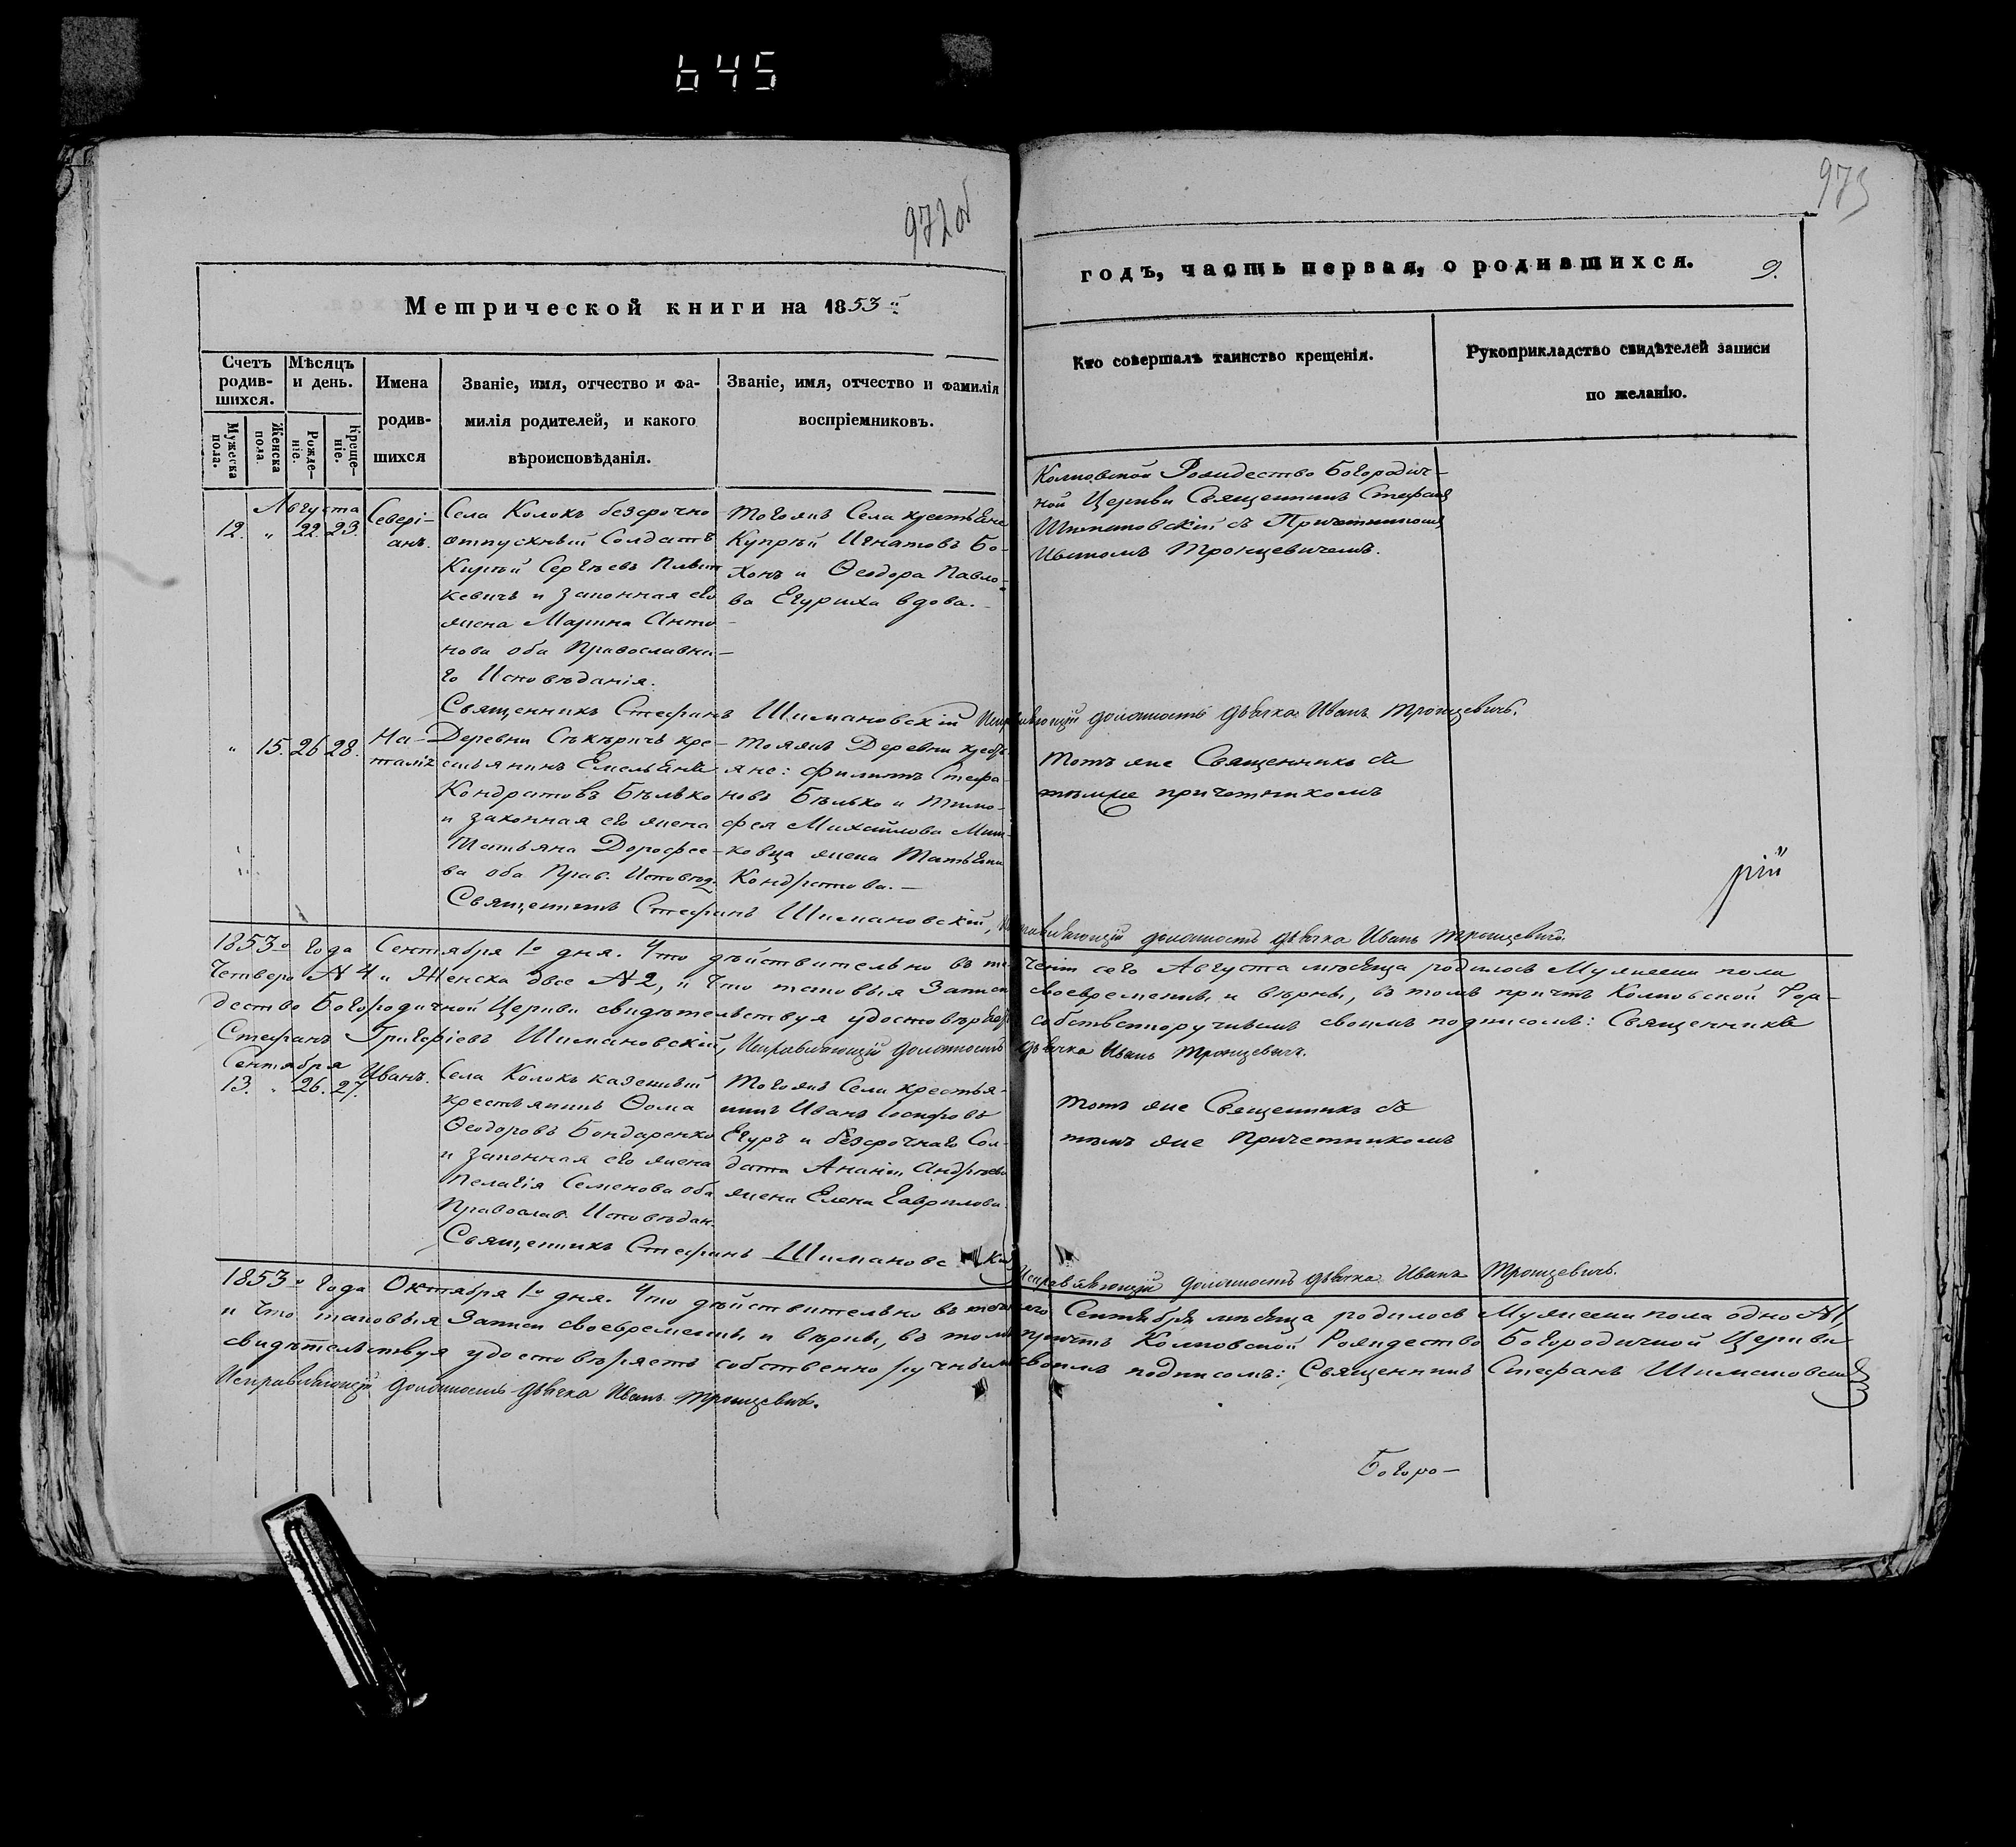 645
972об
973
Метрической книги на 1853й
годъ, часть первая, о родившихся.
9.
Счетъ родив-шихся.
Мѣсяцъ и день.
Мужеска пола.
Женска пола.
Рожде-ніе.
Креще-ніе.
Имена
родив-
шихся
Званіе, имя, отчество и фа-
милія родителей, и какого
вѣроисповѣданія.
Званіе, имя, отчество и фамилія
воспріемниковъ.
Кто совершалъ таинство крещенія.
Рукоприкладство свидѣтелей записи
по желанію.
Августа
12. " 22. 23.
Севері-
анъ.
Села Колокъ безсрочно
отпускный Солдатъ
Сергѣевъ
кевичь и законная его
жена Марина Анто-
нова оба Православна-
го Исповѣданія.
Тогожъ Села крестьяне
Купрѣй Игнатовъ Бо-
хонъ и Ѳеодора Павло-
ва Егуриха вдова.
Колковской Рождество Богородич-
ной Церкви Священникъ Стефанъ
Шимановскій съ Причетникомъ
Иваномъ Трощевичемъ.
Священникъ Стефанъ Шимановскій Исправляющій должность дьячка Иванъ Трощевичъ.
" 15. 26 28.
На-
талія
Деревни кре-
стьянинъ Емельянъ
Кондратовъ Бѣлько
и законная его жена
Татьяна Дорофее-
ва оба Прав. Исповѣд.
Тояжъ Деревни кресть-
яне: Филиппъ Стефа-
новъ Бѣлько и Тимо-
фея Михайлова
жена Татьяна
Кондратова.
Тотъ же Священникъ съ
тѣмже причетникомъ
рій
Священникъ Стефанъ Шимановскій, Исправляющій должность дьячка Иванъ Трощевичъ.
1853го Года Сентября 1го дня. Что дѣйствительно въ теченіи сего Августа мѣсяца родилось Мужеска пола
Четверо № 4 и Женска двое № 2, и что таковыя Записи своевременны и вѣрны, въ томъ причтъ Колковской Рож-
дество Богородичной Церкви свидѣтельствуя удостовѣряетъ собственноручнымъ своимъ подписомъ: Священникъ
Стефанъ Григоріевъ Шимановскій, Исправляющій должность дьячка Иванъ Трощевичъ.
Сентября
13. " 26. 27.
Иванъ.
Села Колокъ казенный
крестьянинъ Ѳома
Ѳеодоровъ Бондаренко
и законная его жена
Пелагія Семенова оба
Православ. Исповѣдан.
Тогожъ Села крестья-
нинъ Иванъ Іосифовъ
Егуръ и безсрочнаго Сол-
дата Ананіи Андреева
жена Елена Гаврилова.
Тотъ же Священникъ съ
тѣмъ же Причетникомъ
Священникъ Стефанъ Шимановскій Исправляющій должность дьячка Иванъ Трощевичъ.
1853го Года Октября 1го дня. Что дѣйствительно въ теченіи сего Сентября мѣсяца родилось Мужеска пола одно № 1,
и что таковыя Записи своевременны и вѣрны, въ томъ причтъ Колковской Рождество Богородичной Церкви
свидѣтельствуя удостовѣряетъ собственноручнымъ своимъ подписомъ: Священникъ Стефанъ Шимановскій
Исправляющій должность дьячка Иванъ Трощевичъ.
Богоро-